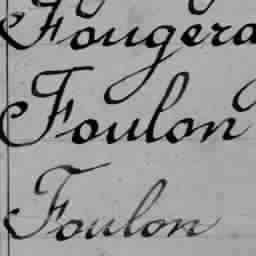 Fougera
Foulon
Foulon